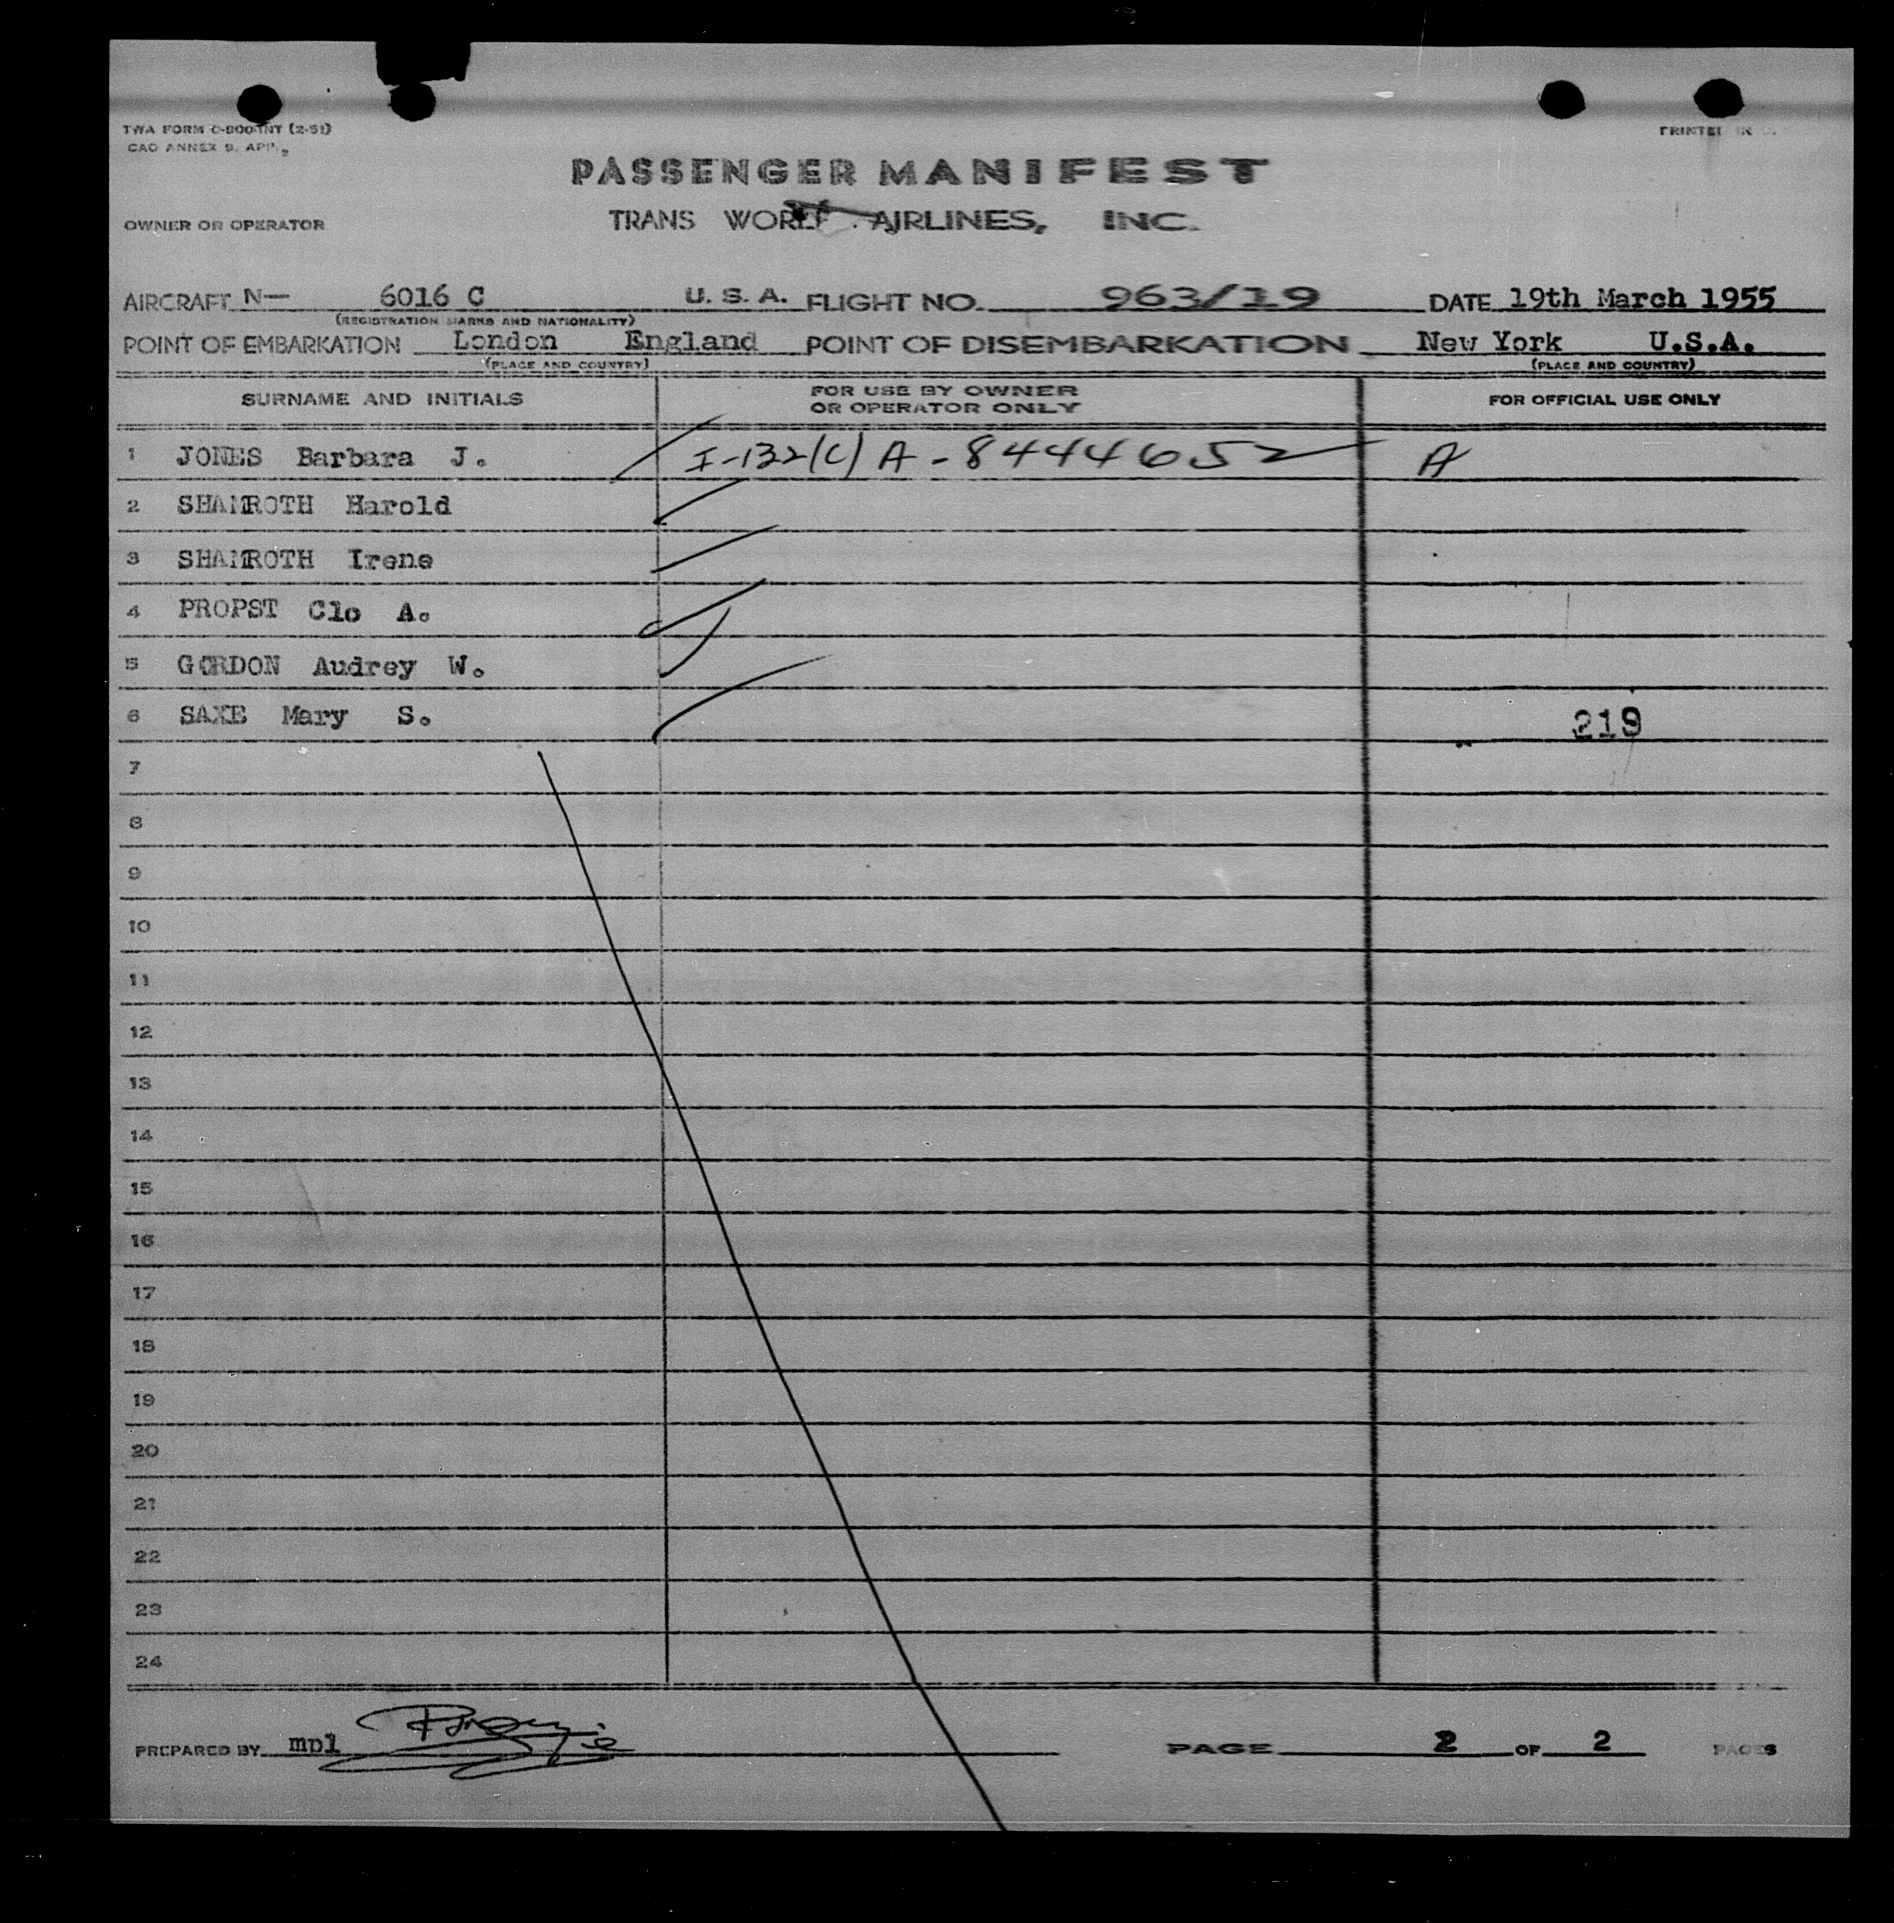 TWA FORM O-800-INT (2-51)
PRINTED IN
PASSENGER MANIFEST
OWNER OR OPERATOR TRANS WORLD AIRLINES, INC.
AIRCRAFT N— 6016 C U. S. A. FLIGHT NO. 963/19 DATE 19th March 1955
(REGISTRATION MARKS AND NATIONALITY)
POINT OF EMBARKATION London England POINT OF DISEMBARKATION New York U.S.A.
(PLACE AND COUNTRY) (PLACE AND COUNTRY)
SURNAME AND INITIALS FOR USE BY OWNER FOR OFFICIAL USE ONLY
OR OPERATOR ONLY
1 JONES Barbara J. I-132(C) A-8444652 A
2 SHAMROTH Harold
3 SHAMROTH Irene
4 PROPST Clo A.
5 GORDON Audrey W.
6 SAXE Mary S. 219
7
8
9
10
11
12
13
14
15
16
17
18
19
20
21
22
23
24
PREPARED BY mpl PAGE 2 OF 2 PAGES